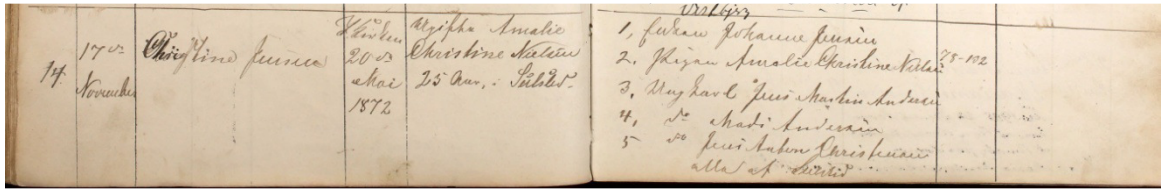 14.
17de
November
Christine Jensen
Kirken
20de
Mai
1872
Ugifte Amalie
Christine Nielsen
25 Aar, i Sulsted.
Vestbjerg
1, Enken Johanne Jensen
2. Pigen Amalie Christine Nielsen
3, Ungkarl Jens Martin Andersen
4, do Mads Andersen
5 do Jens Anton Christensen
alle af Sulsted
78-102